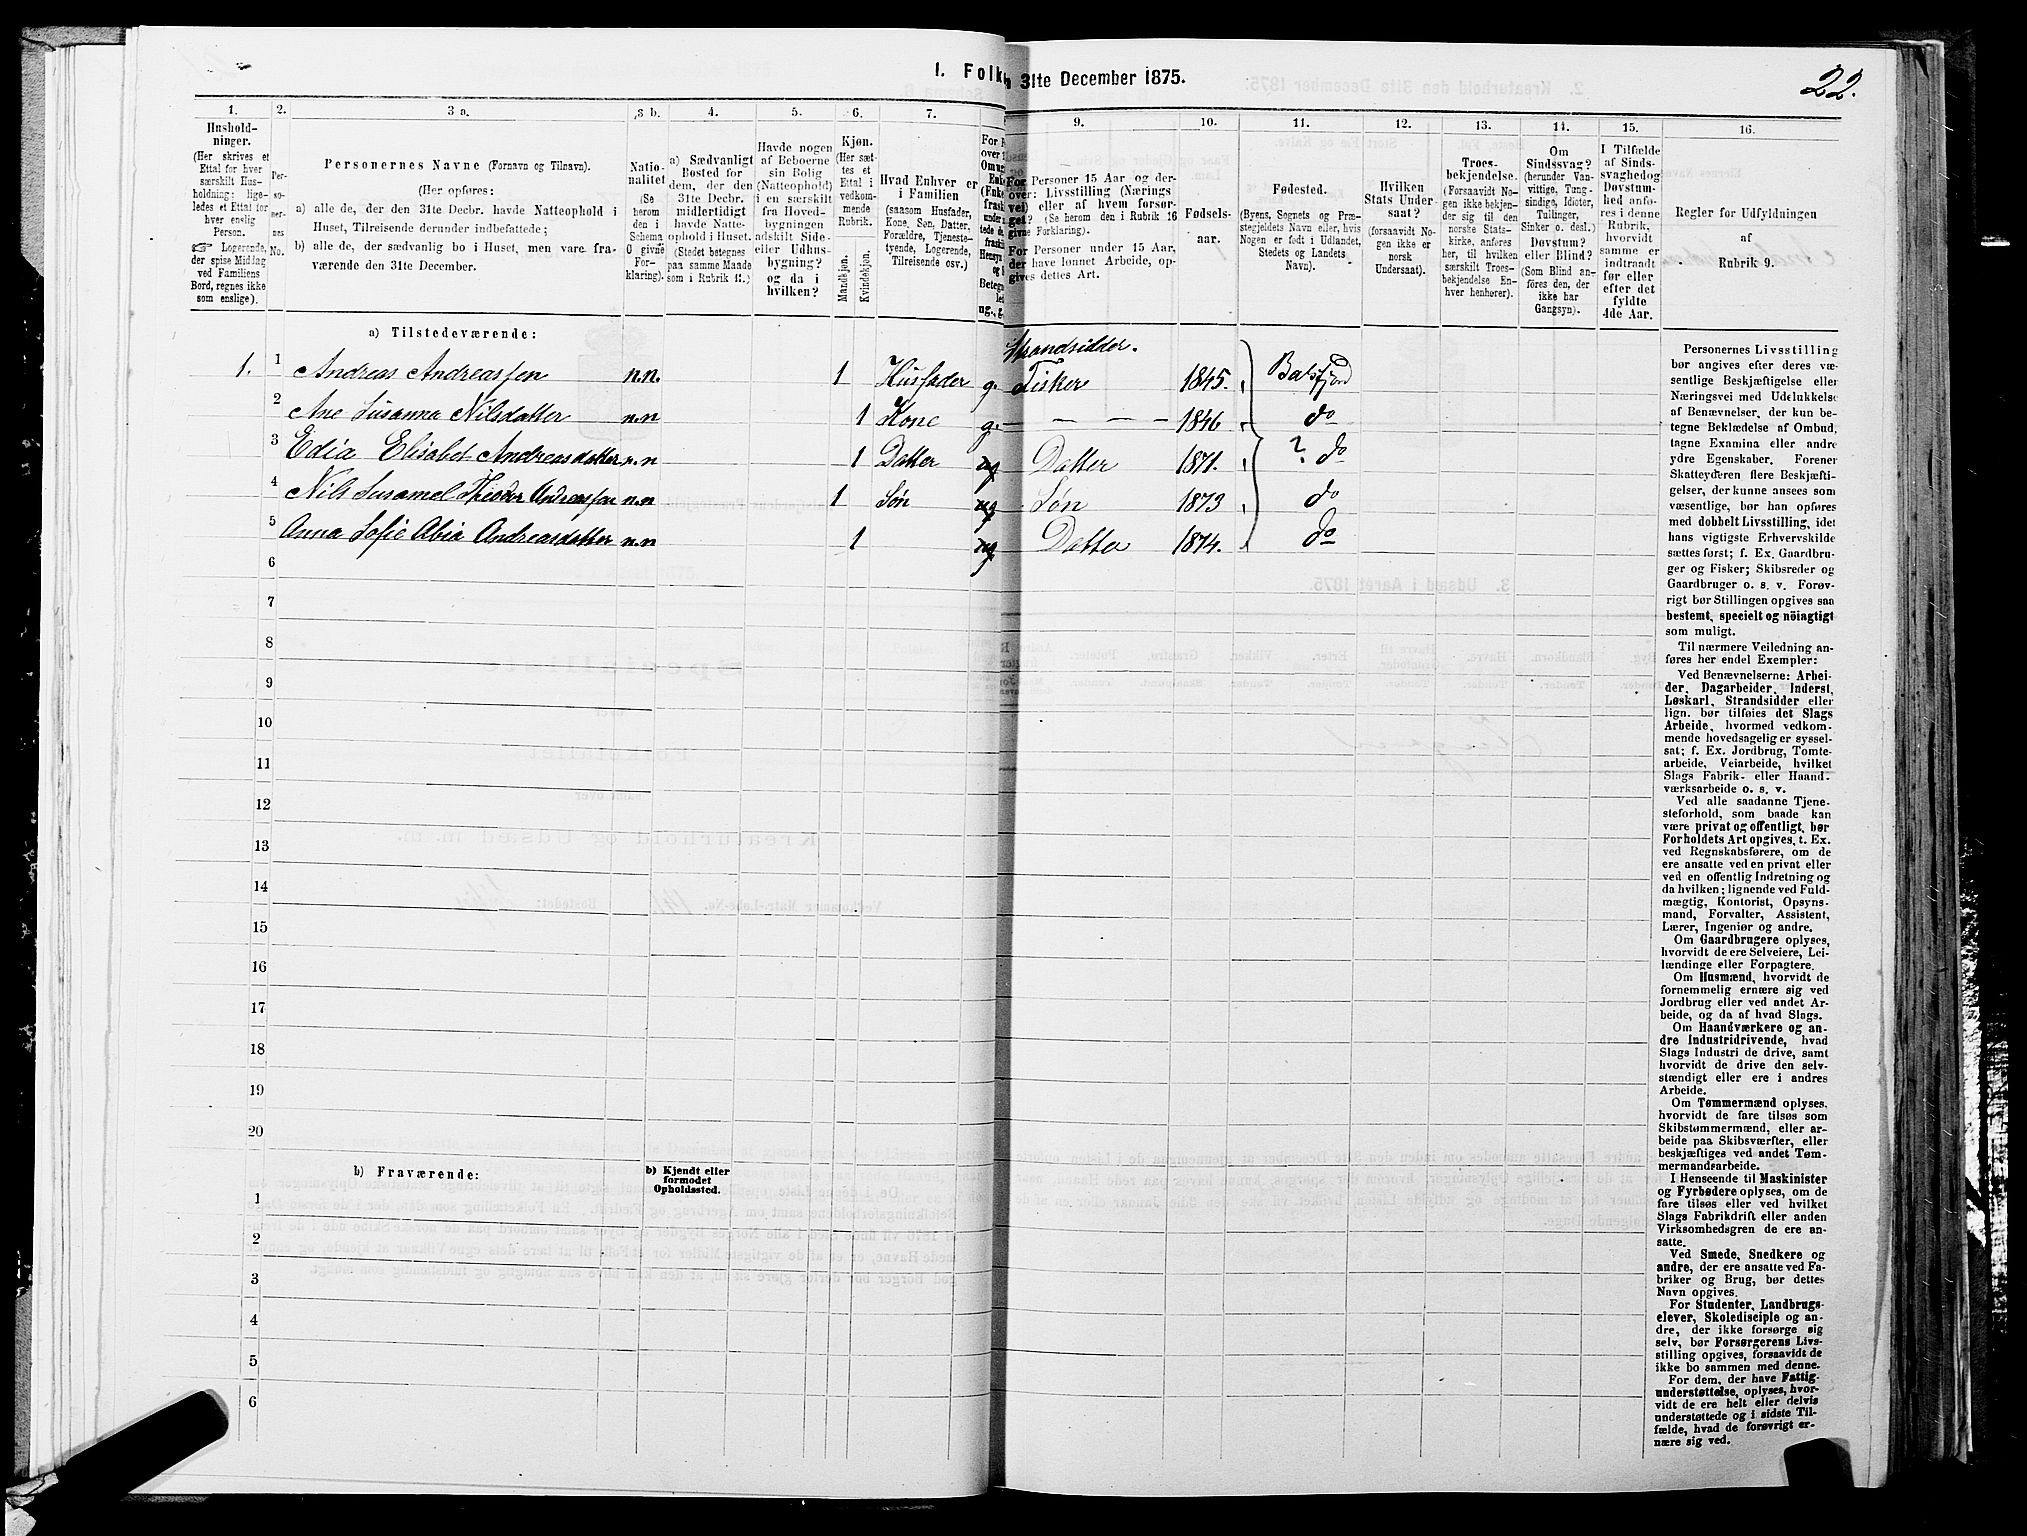 1. Folk
31te December 1875.
22.
1.
2.
3 a.
3 b.
4.
5.
6.
7.
9.
10.
11.
12.
13.
14.
15.
16.
Hushold-
ninger.
(Her skrives et
Ettal for hver
særskilt Hus-
holdning; lige-
ledes et Ettal for
hver enslig
Person.
☞ Logerende,
der spise Middag
ved Familiens
Bord, regnes ikke
som enslige).
Per-
so-
ner-
nes
No.
Personernes Navne (Fornavn og Tilnavn).
(Her opføres:
a) alle de, der den 31te Decbr. havde Natteophold i
Huset, Tilreisende derunder indbefattede;
b) alle de, der sædvanlig bo i Huset, men vare fra-
værende den 31te December.
Natio-
nalitet
(Se
herom
den i
Schema
O givne
For-
klaring).
a) Sædvanligt
Bosted for
dem, der den
31te Decbr.
midlertidigt
havde Natte-
ophold i Huset.
(Stedet betegnes
paa samme Maade
som i Rubrik 11.)
Havde nogen
af Beboerne
sin Bolig
(Natteophold)
i en særskilt
fra Hoved-
bygningen
adskilt Side-
eller Udhus-
bygning?
og da i
hvilken?
Kjøn.
(Her sæt-
tes et
Ettal i
vedkom-
mende
Rubrik.
Mandkjøn.
Kvindekjøn.
Hvad Enhver er
i Familien
(saasom Husfader,
Kone, Søn, Datter,
Forældre, Tjeneste-
tyende, Logerende,
Tilreisende osv.)
Personer 15 Aar og der-
over: Livsstilling (Nærings
vei) eller af hvem forsør-
get? (Se herom den i Rubrik 16
givne Forklaring).
For Personer under 15 Aar,
der have lønnet Arbeide, op-
gives dettes Art.
Fødsels-
aar.
Fødested.
(Byens, Sognets og Præ-
stegjeldets Navn eller, hvis
Nogen er født i Udlandet,
Stedets og Landets
Navn).
Hvilken
Stats Under-
saat?
(forsaavidt No-
gen ikke er
norsk
Undersaat).
Troes-
bekjendelse.
(Forsaavidt No-
gen ikke bekjen-
der sig til den
norske Stats-
kirke, anføres
her, til hvilken
særskilt Troes-
bekjendelse En-
hver henhører).
Om
Sindssvag?
(herunder Van-
vittige, Tung-
sindige, Idioter,
Tullinger,
Sinker o. desl.)
Døvstum?
eller Blind?
(Som Blind an-
føres den, der
ikke har
Gangsyn).
I Tilfælde
af Sinds-
svaghed og
Døvstum-
hed anfø-
res i denne
Rubrik,
hvorvidt
samme er
indtraadt
før eller
efter det
fyldte
4de Aar.
Regler for Udfyldningen
af
Rubrik 9.
a) Tilstedeværende:
Strandsidder.
1. 1 Andreas Andreassen n.n. 1 Husfader g. Fisker 1845. Balsfjord
2 Ane Susanna Nilsdatter n.n 1 Kone g. — — — 1846 do
3 Edia Elisabet Andreasdatter n.n 1 Datter ug Datter 1871. ? do
4 Nils Susamel Theodor Andreassen n.n 1 Søn ug Søn 1873 do
5 Anna Sofie Abia Andreasdatter n.n 1 ug Datter 1874. do
6
7
8
9
10
11
12
13
14
15
16
17
18
19
20
b) Fraværende:
b) Kjendt eller
formodet
Opholdssted.
1
2
3
4
5
6
Personernes Livsstilling
bør angives efter deres væ-
sentlige Beskjæftigelse eller
Næringsvei med Udelukkelse
af Benævnelser, der kun be-
tegne Beklædelse af Ombud,
tagne Examina eller andre
ydre Egenskaber. Forener
Skatteyderen flere Beskjæfti-
gelser, der kunne ansees som
væsentlige, bør han opføres
med dobbelt Livsstilling, idet
hans vigtigste Erhvervskilde
sættes først; f. Ex. Gaardbru-
ger og Fisker; Skibsreder og
Gaardbruger o. s. v. Forøv-
rigt bør Stillingen opgives saa
bestemt, specielt og nöiagtigt
som muligt.
Til nærmere Veiledning an-
føres her endel Exempler:
Ved Benævnelserne: Arbei-
der, Dagarbeider, Inderst,
Løskarl, Strandsidder eller
lign. bør tilføies det Slags
Arbeide, hvormed vedkom-
mende hovedsagelig er syssel-
sat; f. Ex. Jordbrug, Tomte-
arbeide, Veiarbeide, hvilket
Slags Fabrik- eller Haand-
værksarbeide o. s. v.
Ved alle saadanne Tjene-
steforhold, som baade kan
være privat og offentligt, bør
Forholdets Art opgives, t. Ex.
ved Regnskabsførere, om de
ere ansatte ved en privat eller
ved en offentlig Indretning og
da hvilken; lignende ved Fuld-
mægtig, Kontorist, Opsyns-
mand, Forvalter, Assistent,
Lærer, Ingeniør og andre.
Om Gaardbrugere oplyses,
hvorvidt de ere Selveiere, Lei-
lændinge eller Forpagtere.
Om Husmænd, hvorvidt de
fornemmelig ernære sig ved
Jordbrug eller ved andet Ar-
beide, og da af hvad Slags.
Om Haandværkere og an-
dre Industridrivende, hvad
Slags Industri de drive, samt
hvorvidt de drive den selv-
stændigt eller ere i andres
Arbeide.
Om Tømmermænd oplyses,
hvorvidt de fare tilsøs som
Skibstømmermænd, eller ar-
beide paa Skibsværfter, eller
beskjæftiges ved andet Tøm-
mermandsarbeide.
I Henseende til Maskinister
og Fyrbødere oplyses, om de
fare tilsøs eller ved hvilket
Slags Fabrikdrift eller anden
Virksomhedsgren de ere an-
satte.
Ved Smede, Snedkere og
andre, der ere ansatte ved Fa-
briker og Brug, bør dettes
Navn opgives.
For Studenter, Landbrugs-
elever, Skoledisciple og an-
dre, der ikke forsørge sig
selv, bør Forsørgerens Livs-
stilling opgives, forsaavidt de
ikke bo sammen med denne.
For dem, der have Fattig-
understøttelse, oplyses, hvor-
vidt de ere helt eller delvis
understøttede og i sidste Til-
fælde, hvad de forøvrigt er-
nære sig ved.